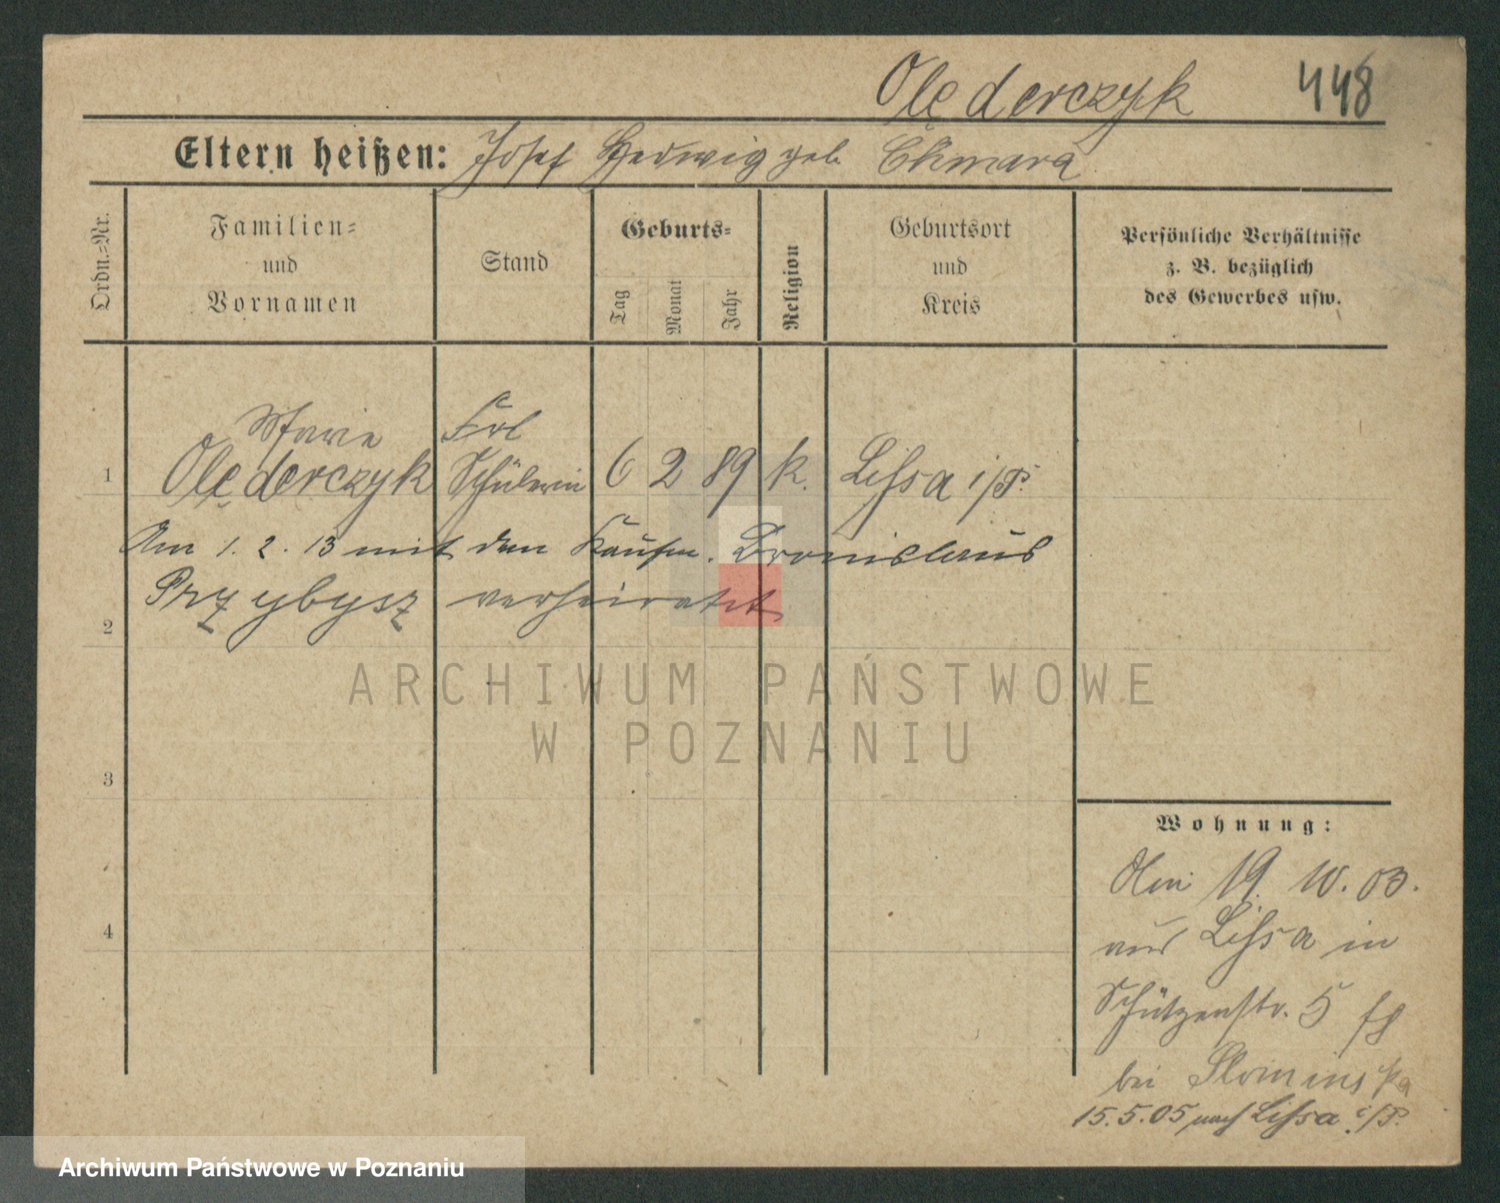 Olęderczyk 448
Eltern heißen: Josef Hedwig geb. Chmara
Ordn.=Nr.
Familien=
und
Vornamen
Stand
Geburts=
Tag
Monat
Jahr
Religion
Geburtsort
und
Kreis
Persönliche Verhältnisse
z. B. bezüglich
des Gewerbes usw.
Marie Frl
1 Olęderczyk Schülerin 6 2 89 k. Lissa i/P.
Am 1. 2. 13 mit dem Kaufm. Bronislaus
Przybysz verheiratet
2
ARCHIWUM PAŃSTWOWE
W POZNANIU
3
Wohnung:
Am 19. 10. 03.
4
aus Lissa in
Schützenstr. 5
bei Slominska
15.5.05 nach Lissa i/P.
Archiwum Państwowe w Poznaniu